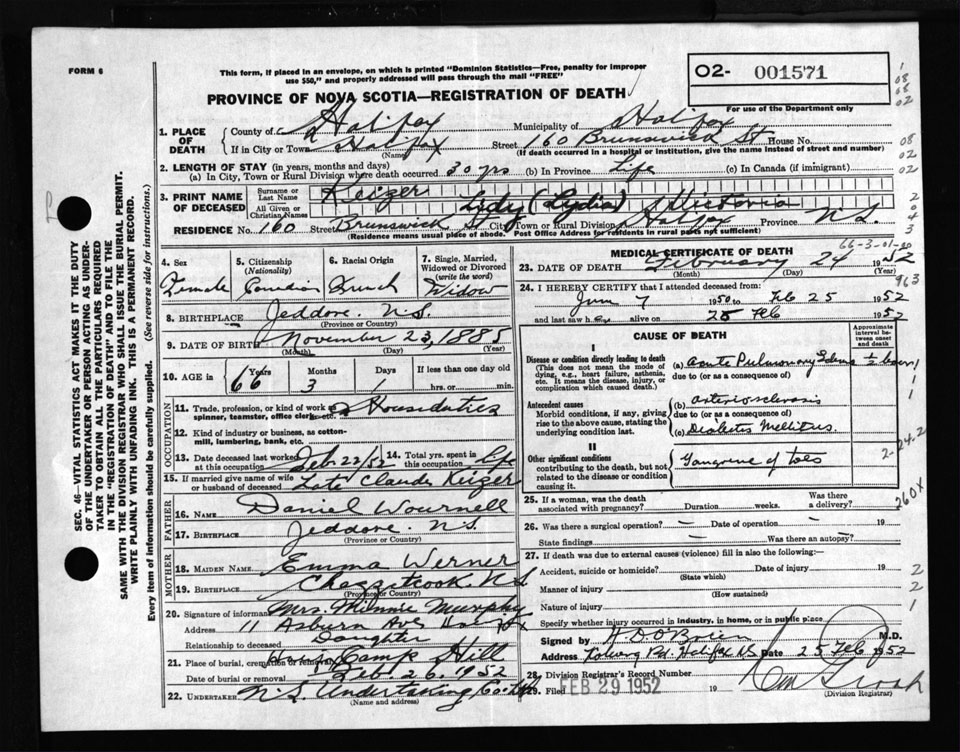 FORM 6
This form, if placed in an envelope, on which is printed "Dominion Statistics—Free, penalty for improper
use $50," and properly addressed will pass through the mail "FREE"
02- 001571
For use of the Department only
PROVINCE OF NOVA SCOTIA—REGISTRATION OF DEATH
1. PLACE OF DEATH
County of Halifax Municipality of Halifax
If in City or Town Halifax Street 160 Brunswick St House No.
(Name) (If death occurred in a hospital or institution, give the name instead of street and number)
2. LENGTH OF STAY (in years, months and days)
(a) In City, Town or Rural Division where death occurred 30 yrs (b) In Province Life (c) In Canada (if immigrant)
3. PRINT NAME OF DECEASED
Surname or Last Name Keizer
All Given or Christian Names Lidy (Lydia) Victoria
RESIDENCE No. 160 Street Brunswick St City, Town or Rural Division Halifax Province N.S.
(Residence means usual place of abode. Post Office Address for residents in rural parts not sufficient)
4. Sex Female
5. Citizenship (Nationality) Canadian
6. Racial Origin French
7. Single, Married, Widowed or Divorced (write the word) Widow
8. BIRTHPLACE Jeddore N.S.
(Province or Country)
9. DATE OF BIRTH November 23, 1885
(Month) (Day) (Year)
10. AGE in Years 66 Months 3 Days 1 If less than one day old hrs. or min.
OCCUPATION
11. Trade, profession, or kind of work as spinner, teamster, office clerk, etc. Houseduties
12. Kind of industry or business, as cotton-mill, lumbering, bank, etc.
13. Date deceased last worked at this occupation Feb. 22/52
14. Total yrs. spent in this occupation life
15. If married give name of wife or husband of deceased Late Claude Keizer
FATHER
16. NAME Daniel Wournell
17. BIRTHPLACE Jeddore N.S.
(Province or Country)
MOTHER
18. MAIDEN NAME Emma Werner
19. BIRTHPLACE Chezzetcook N S
(Province or Country)
20. Signature of informant Mrs. Minnie Murphy
Address 11 Asburn Ave Halifax
Relationship to deceased Daughter
21. Place of burial, cremation or removal Camp Hill
Date of burial or removal Feb. 26. 1952
22. UNDERTAKER N.S. Undertaking Co Ltd
(Name and address)
MEDICAL CERTIFICATE OF DEATH
66-3-01-
23. DATE OF DEATH February 24 1952
(Month) (Day) (Year)
963
24. I HEREBY CERTIFY that I attended deceased from:
June 7 1950 to Feb 25 1952
and last saw h er alive on 25 Feb 1952
CAUSE OF DEATH
Approximate interval between onset and death
I
Disease or condition directly leading to death
(This does not mean the mode of dying, e.g., heart failure, asthenia, etc. It means the disease, injury, or complication which caused death.)
(a) Acute Pulmonary Edema ½ hour
due to (or as a consequence of)
Antecedent causes
Morbid conditions, if any, giving rise to the above cause, stating the underlying condition last.
(b) Arteriosclerosis
due to (or as a consequence of)
(c) Diabetes Mellitus
II
Other significant conditions
contributing to the death, but not related to the disease or condition causing it.
Gangrene of toes
260X
25. If a woman, was the death associated with pregnancy? Duration weeks. Was there a delivery?
26. Was there a surgical operation? — Date of operation — 19
State findings — Was there an autopsy?
27. If death was due to external causes (violence) fill in also the following:—
Accident, suicide or homicide? Date of injury 19
(State which)
Manner of injury
(How sustained)
Nature of injury
Specify whether injury occurred in industry, in home, or in public place
Signed by D. O'Brien M.D.
Address Halifax N.S. Date 25 Feb 1952
28. Division Registrar's Record Number
29. Filed FEB 29 1952 19
(Division Registrar)
SEC. 46—VITAL STATISTICS ACT MAKES IT THE DUTY
OF THE UNDERTAKER OR PERSON ACTING AS UNDER-
TAKER TO OBTAIN ALL THE PARTICULARS REQUIRED
IN THE "REGISTRATION OF DEATH" AND TO FILE THE
SAME WITH THE DIVISION REGISTRAR WHO SHALL ISSUE THE BURIAL PERMIT.
WRITE PLAINLY WITH UNFADING INK. THIS IS A PERMANENT RECORD.
Every item of information should be carefully supplied. (See reverse side for instructions.)